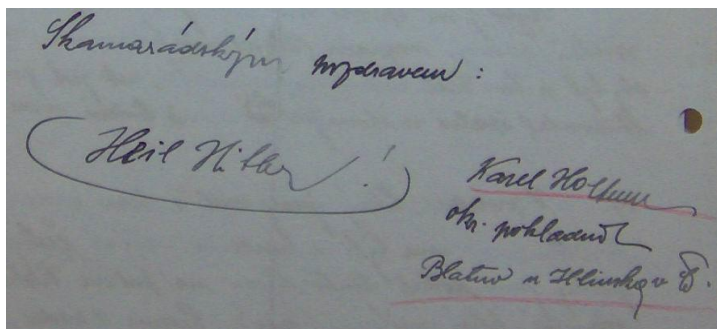 Skamarádským pozdravem :
Heil Hitler !
Karel
okr. pokladník
Blatno u Hlinska v Č.